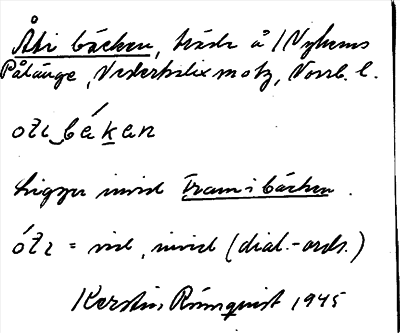 Åti bäcken, träde å / Nyhems
Pålänge, Nederkalix motz, Norrb. l.
oti bäkan
Ligger invid Fram i bäcken.
óti = vid, invid (dial.-ords.)
Kerstin Rönnquist 1945